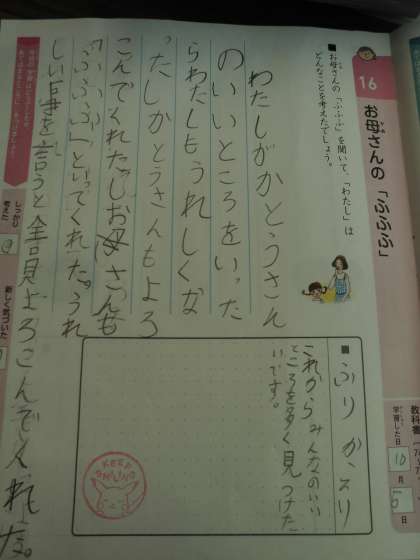 16
お母さんの「ふふふ」
■お母さんの「ふふふ」を聞いて、「わたし」は
どんなことを考えたでしょう。
わたしがかとうさん
のいいところをいった
らわたしもうれしくな
った。かとうさんもよろ
こんでくれたしお母さんも
「ふふふ」といってくれた。うれ
しいときを言うと全員よろこんでくれた。
■ふりかえり
これからみんなのいい
ところを多く見つけた
いです。
KEEP SMILING
教科書
学習した日
10
月
5
日
しっかり
考えた
新しく気づいた